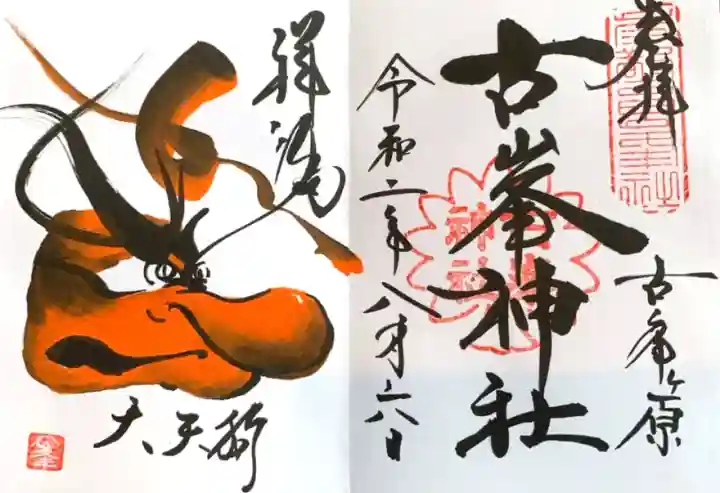 奉拝
古峯ヶ原
古峯神社
令和二年八月六日
祥鴻
大天狗